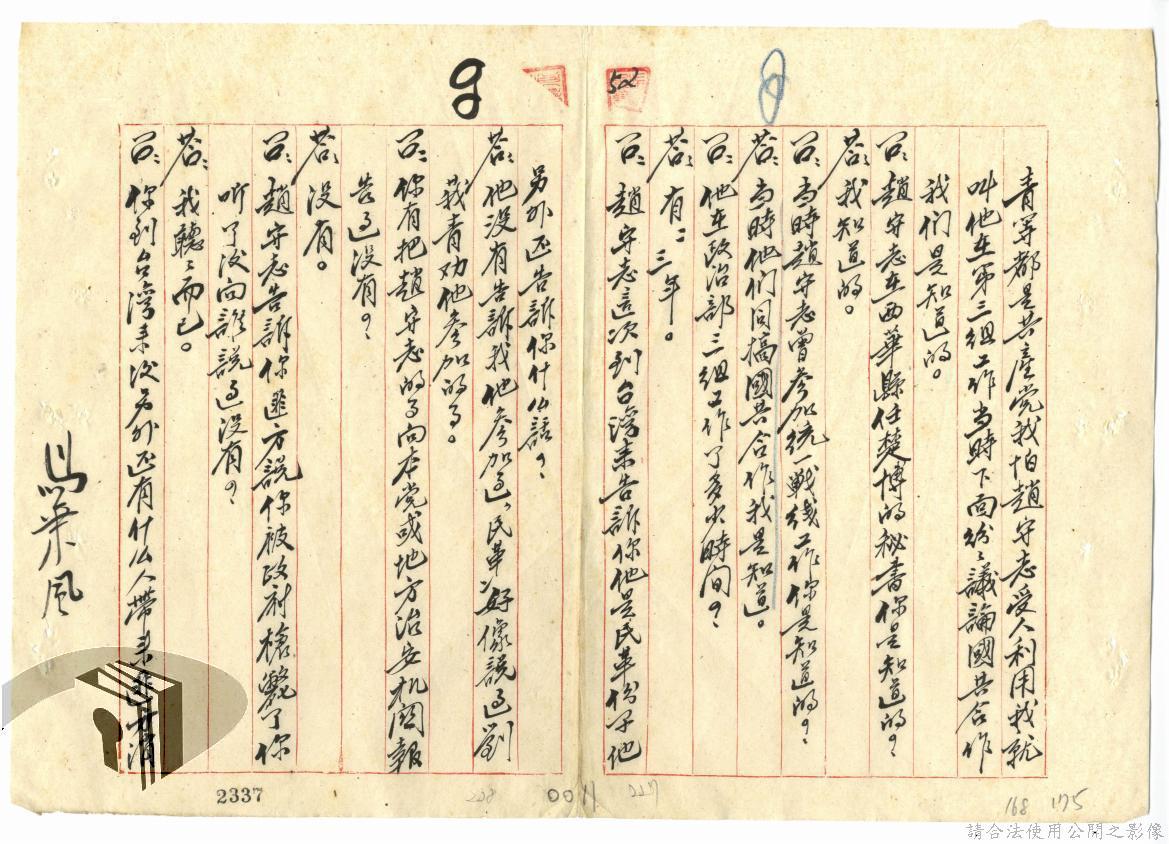 52
青等都是共產党我怕趙守志受人利用我就
叫他在第三組工作当時下面紛々議論國共合作
我们是知道的。
问：趙守志在西華縣任楚博的秘書你是知道的？
答：我知道的。
问：当時趙守志曾参加統一戰线工作你是知道的？
答：当時他们同搞國共合作我是知道。
问：他在政治部三組工作了多少時间？
答：有二三年。
问：趙守志這次到台湾來告訴你他是民革份子他
另外还告訴你什么話？
答：他没有告訴我他参加过“民革”好像説过劉
莪青劝他参加的事。
问：你有把趙守志的事向本党或地方治安机関報
告过没有？
答：没有。
问：趙守志告訴你匪方説你被政府槍斃了你
听了没向誰説过没有？
答：我聽々而已。
问：你到台湾来後另外还有什么人帶来匪方消
2337
0011
168
175
請合法使用公開之影像